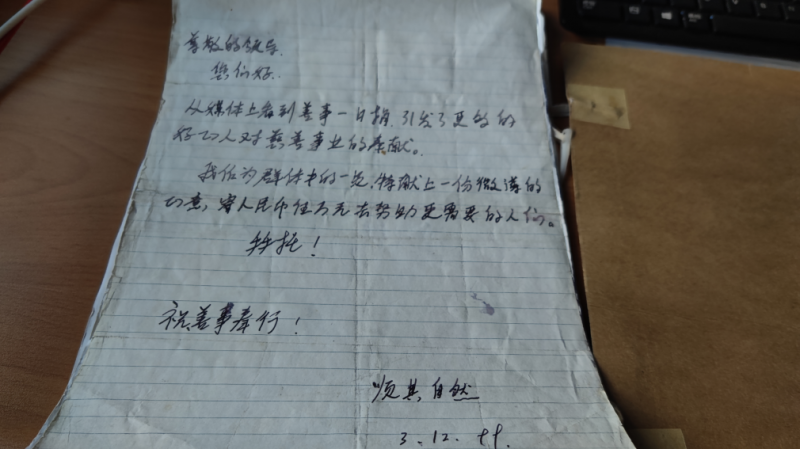 尊敬的领导,
您们好.
从媒体上看到善事一日捐,引发了更多的
好心人对慈善事业的奉献。
我作为群体中的一员,特献上一份微薄的
心意,寄人民币伍万元去帮助更需要的人们。
拜托!
祝善事奉行!
顺其自然
3.12.99.